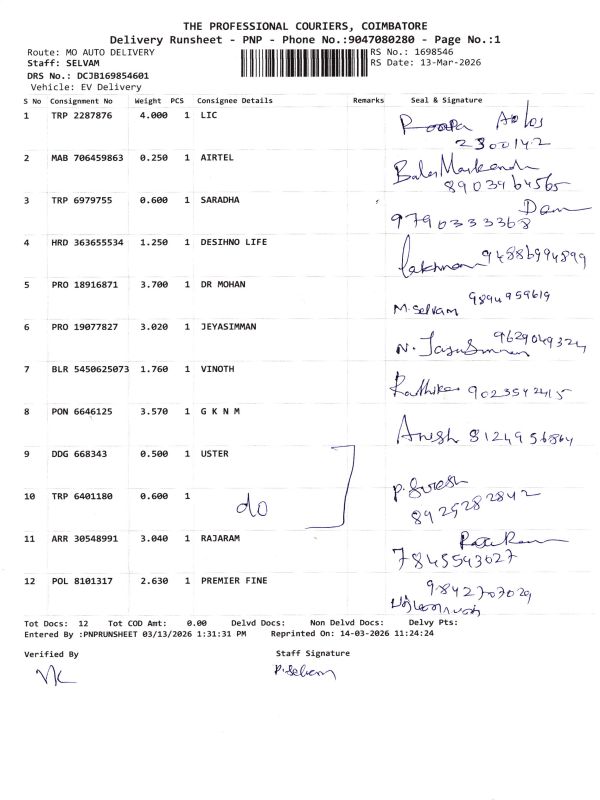 THE PROFESSIONAL COURIERS, COIMBATORE
Delivery Runsheet - PNP - Phone No.:9047080280 - Page No.:1
Route: MO AUTO DELIVERY RS No.: 1698546
Staff: SELVAM RS Date: 13-Mar-2026
DRS No.: DCJB169854601
Vehicle: EV Delivery
S No Consignment No Weight PCS Consignee Details Remarks Seal & Signature
1 TRP 2287876 4.000 1 LIC
2300142
2 MAB 706459863 0.250 1 AIRTEL
8903964565
3 TRP 6979755 0.600 1 SARADHA
9790333368
4 HRD 363655534 1.250 1 DESIHNO LIFE
Lakshman 94886994899
5 PRO 18916871 3.700 1 DR MOHAN
M. Selvam 9894959619
6 PRO 19077827 3.020 1 JEYASIMMAN
9629049324
7 BLR 5450625073 1.760 1 VINOTH
Radhika 9023542415
8 PON 6646125 3.570 1 G K N M
Anish 8124956864
9 DDG 668343 0.500 1 USTER
P. Suresh
10 TRP 6401180 0.600 1 do
8925282842
11 ARR 30548991 3.040 1 RAJARAM
7845543027
12 POL 8101317 2.630 1 PREMIER FINE
9842707029
Tot Docs: 12 Tot COD Amt: 0.00 Delvd Docs: Non Delvd Docs: Delvy Pts:
Entered By :PNPRUNSHEET 03/13/2026 1:31:31 PM Reprinted On: 14-03-2026 11:24:24
Verified By Staff Signature
P. Selvam